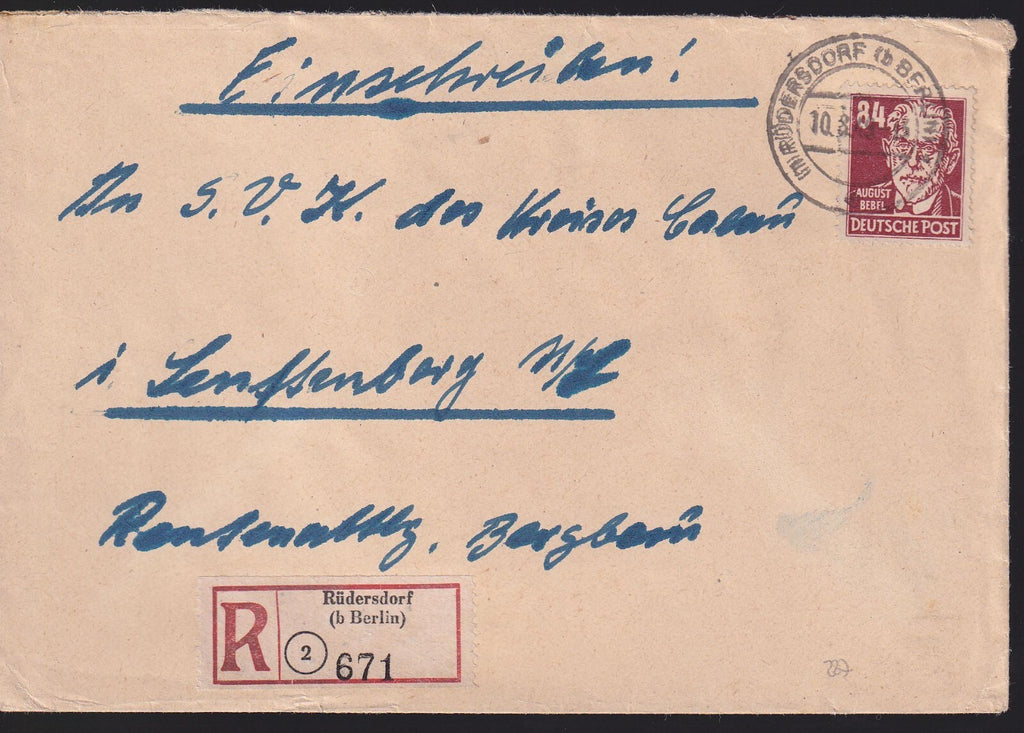 Einschreiben!
RÜDERSDORF (b BERLIN)
10.8.
84
AUGUST
BEBEL
DEUTSCHE POST
An S.V.K. des Kreises Calau
i Senftenberg N/L
Rentenabtlg. Bergbau
R
Rüdersdorf
(b Berlin)
2
671
227